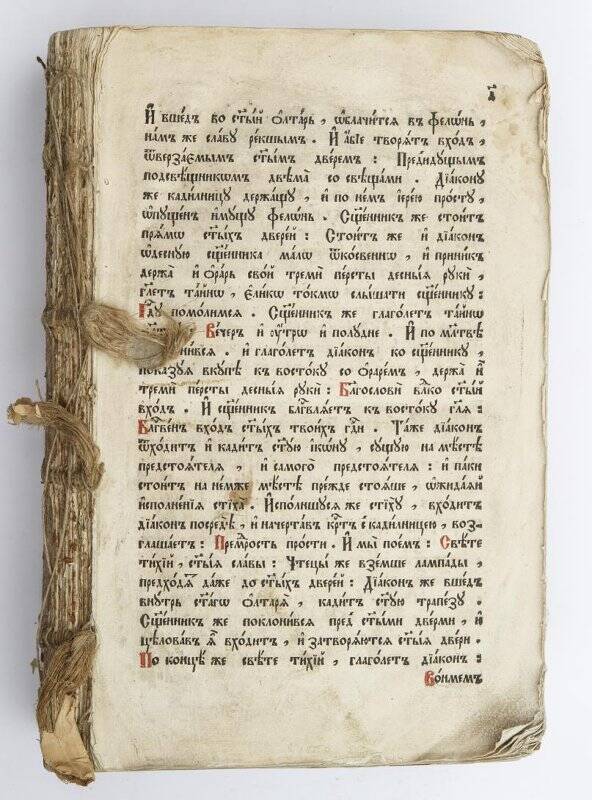 д҃
И҆ вше́дъ во ст҃ы́й ѻ҆лта́рь , ѡ҆блачи́тсѧ въ фело́нь ,
на́мъ же сла́вꙋ ре́кшымъ . И҆ а҆́бїе творѧ́тъ вхо́дъ ,
ѿверза́ємымъ ст҃ы́мъ две́ремъ : Предидꙋ́щымъ
подсвѣ́щникѡмъ двѣма̀ со свѣща́ми . Дїа́конꙋ
же кади́лницꙋ держа́щꙋ , и҆ по не́мъ і҆ере́ю про́стꙋ ,
ѡ҆пꙋ́щенъ и҆мꙋ́щꙋ фело́нь . Сщ҃е́нникъ же стои́тъ
прѧ́мѡ ст҃ы́хъ двере́й : Стои́тъ же и҆ дїа́конъ
ѡ҆деснꙋ́ю сщ҃е́нника ма́лѡ ѿко́свеннѡ , и҆ прини́къ
держа̀ и҆ ѻ҆ра́рь сво́й тремѝ пе́рсты десны́ѧ рꙋкѝ ,
гл҃етъ та́йнѡ , є҆ли́кѡ то́кмѡ слы́шати сщ҃е́нникꙋ :
Гдⷭ҇ꙋ помо́лимсѧ . Сщ҃е́нникъ же глаго́летъ та́йнѡ
Ве́черъ и҆ ᲂу҆́трѡ и҆ полꙋ́дне . И҆ по мл҃твѣ
и҆ глаго́летъ дїа́конъ ко сщ҃е́нникꙋ ,
показꙋ́ѧ вкꙋ́пѣ къ восто́кꙋ со ѻ҆раре́мъ , держа̀ и҆̀
тремѝ пе́рсты десны́ѧ рꙋкѝ : Благословѝ влⷣко ст҃ы́й
вхо́дъ . И҆ сщ҃е́нникъ блгⷭ҇влѧ́етъ къ восто́кꙋ гл҃ѧ :
Блгⷭ҇ве́нъ вхо́дъ ст҃ы́хъ твои́хъ гдⷭ҇и . Та́же дїа́конъ
ѿхо́дитъ и҆ кади́тъ ст҃ꙋ́ю і҆кѡ́нꙋ , сꙋ́щꙋю на мѣ́стѣ
предстоѧ́телѧ , и҆ самого̀ предстоѧ́телѧ : и҆ па́ки
стои́тъ на не́мже мѣ́стѣ пре́жде стоѧ́ше , ѡ҆жида́ѧй
и҆сполне́нїѧ стїха̀ . И҆спо́лншꙋсѧ же стїхꙋ̀ , вхо́дитъ
дїа́конъ посредѣ̀ , и҆ начерта́въ крⷭ҇тъ с кади́лницею , воз-
глаша́етъ : Премⷣрость про́сти . И҆ мы̀ пое́мъ : Свѣ́те
ти́хїй , ст҃ы́ѧ сла́вы : Чтецы́ же взе́мше лампа́ды ,
предхо́дѧтъ да́же до ст҃ы́хъ двере́й : Дїа́конъ же вше́дъ
внꙋ́трь ст҃а́гѡ ѻ҆лтарѧ̀ , кади́тъ ст҃ꙋ́ю трапе́зꙋ .
Сщ҃е́нникъ же поклони́всѧ пред̾ ст҃ы́ми две́рми , и҆
цѣлова́въ ѧ҆̀ вхо́дитъ , и҆ затворѧ́ютсѧ ст҃ы́ѧ две́ри .
По концѣ́ же свѣ́те ти́хїй , глаго́летъ дїа́конъ :
Во́нмемъ